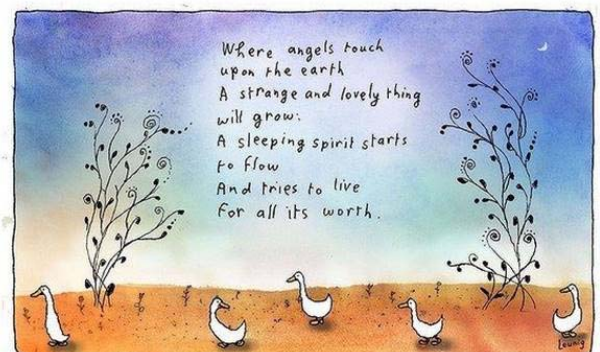 Where angels touch
upon the earth
A strange and lovely thing
will grow:
A sleeping spirit starts
to flow
And tries to live
For all its worth.
Leunig